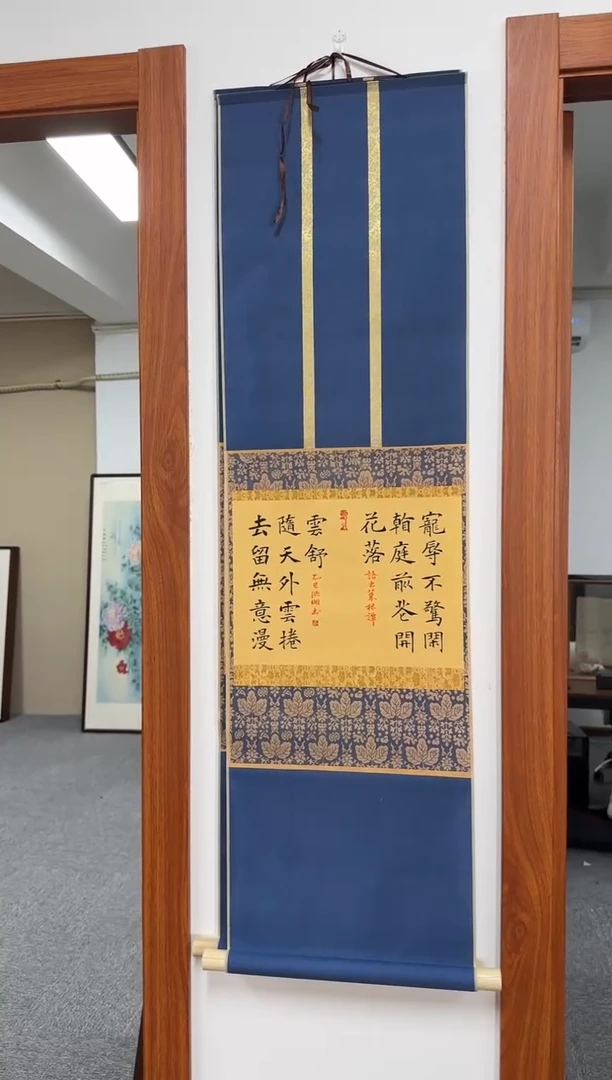 寵辱不驚閑
看庭前花開
花落
語出菜根譚
去留無意漫
隨天外雲捲
雲舒
乙巳